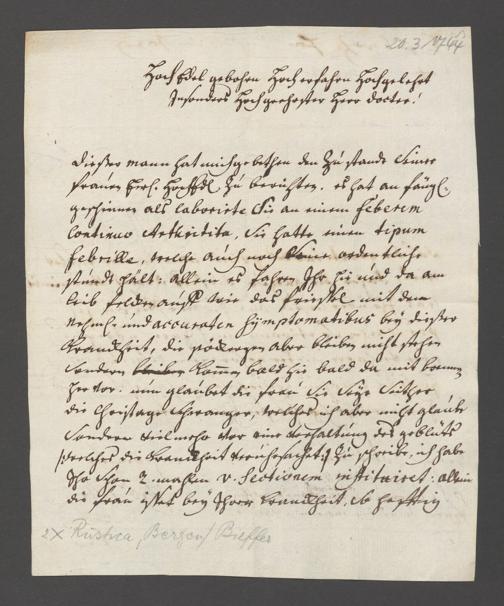 20.3.1744
HochEdel gebohren Hocherfahren Hochgelehrt
Insonders Hochgeehrtester Herr doctor!
dießer mann hat mich gebethen den Zustandt Seiner
frauen Eur. HochEdl. Zu berichten. es hat anfängl.
geschienen als laborirte Sie an einem feberem
continuo Arthritita, Sie hatte einen tipum
febrille, welche auch noch Seine ordentliche
stundt halt: allein es fahren Ihr hie und da am
leib felden auß wie das frießel mit dem
nehml: und accuraten Simptomatibus bey dießer
Krandheit, die aber bleiben nicht stehen
sondern kommen bald hie bald da mit
her vor: nun glaubet die frau Sie Seye Seither
die Christage Schwanger, welches ich aber nicht glaube
Sondern vielmehr vor eine Verhaltung des geblüts
welches die Krandheit verursachet Zu schreibe, ich habe
Ihr schon 2. mahlen V. Sectionem instituiret: allein
die frau ist bey Ihrer Krandheit, so hefftig
2x Rustica, Bergen / Bieffer